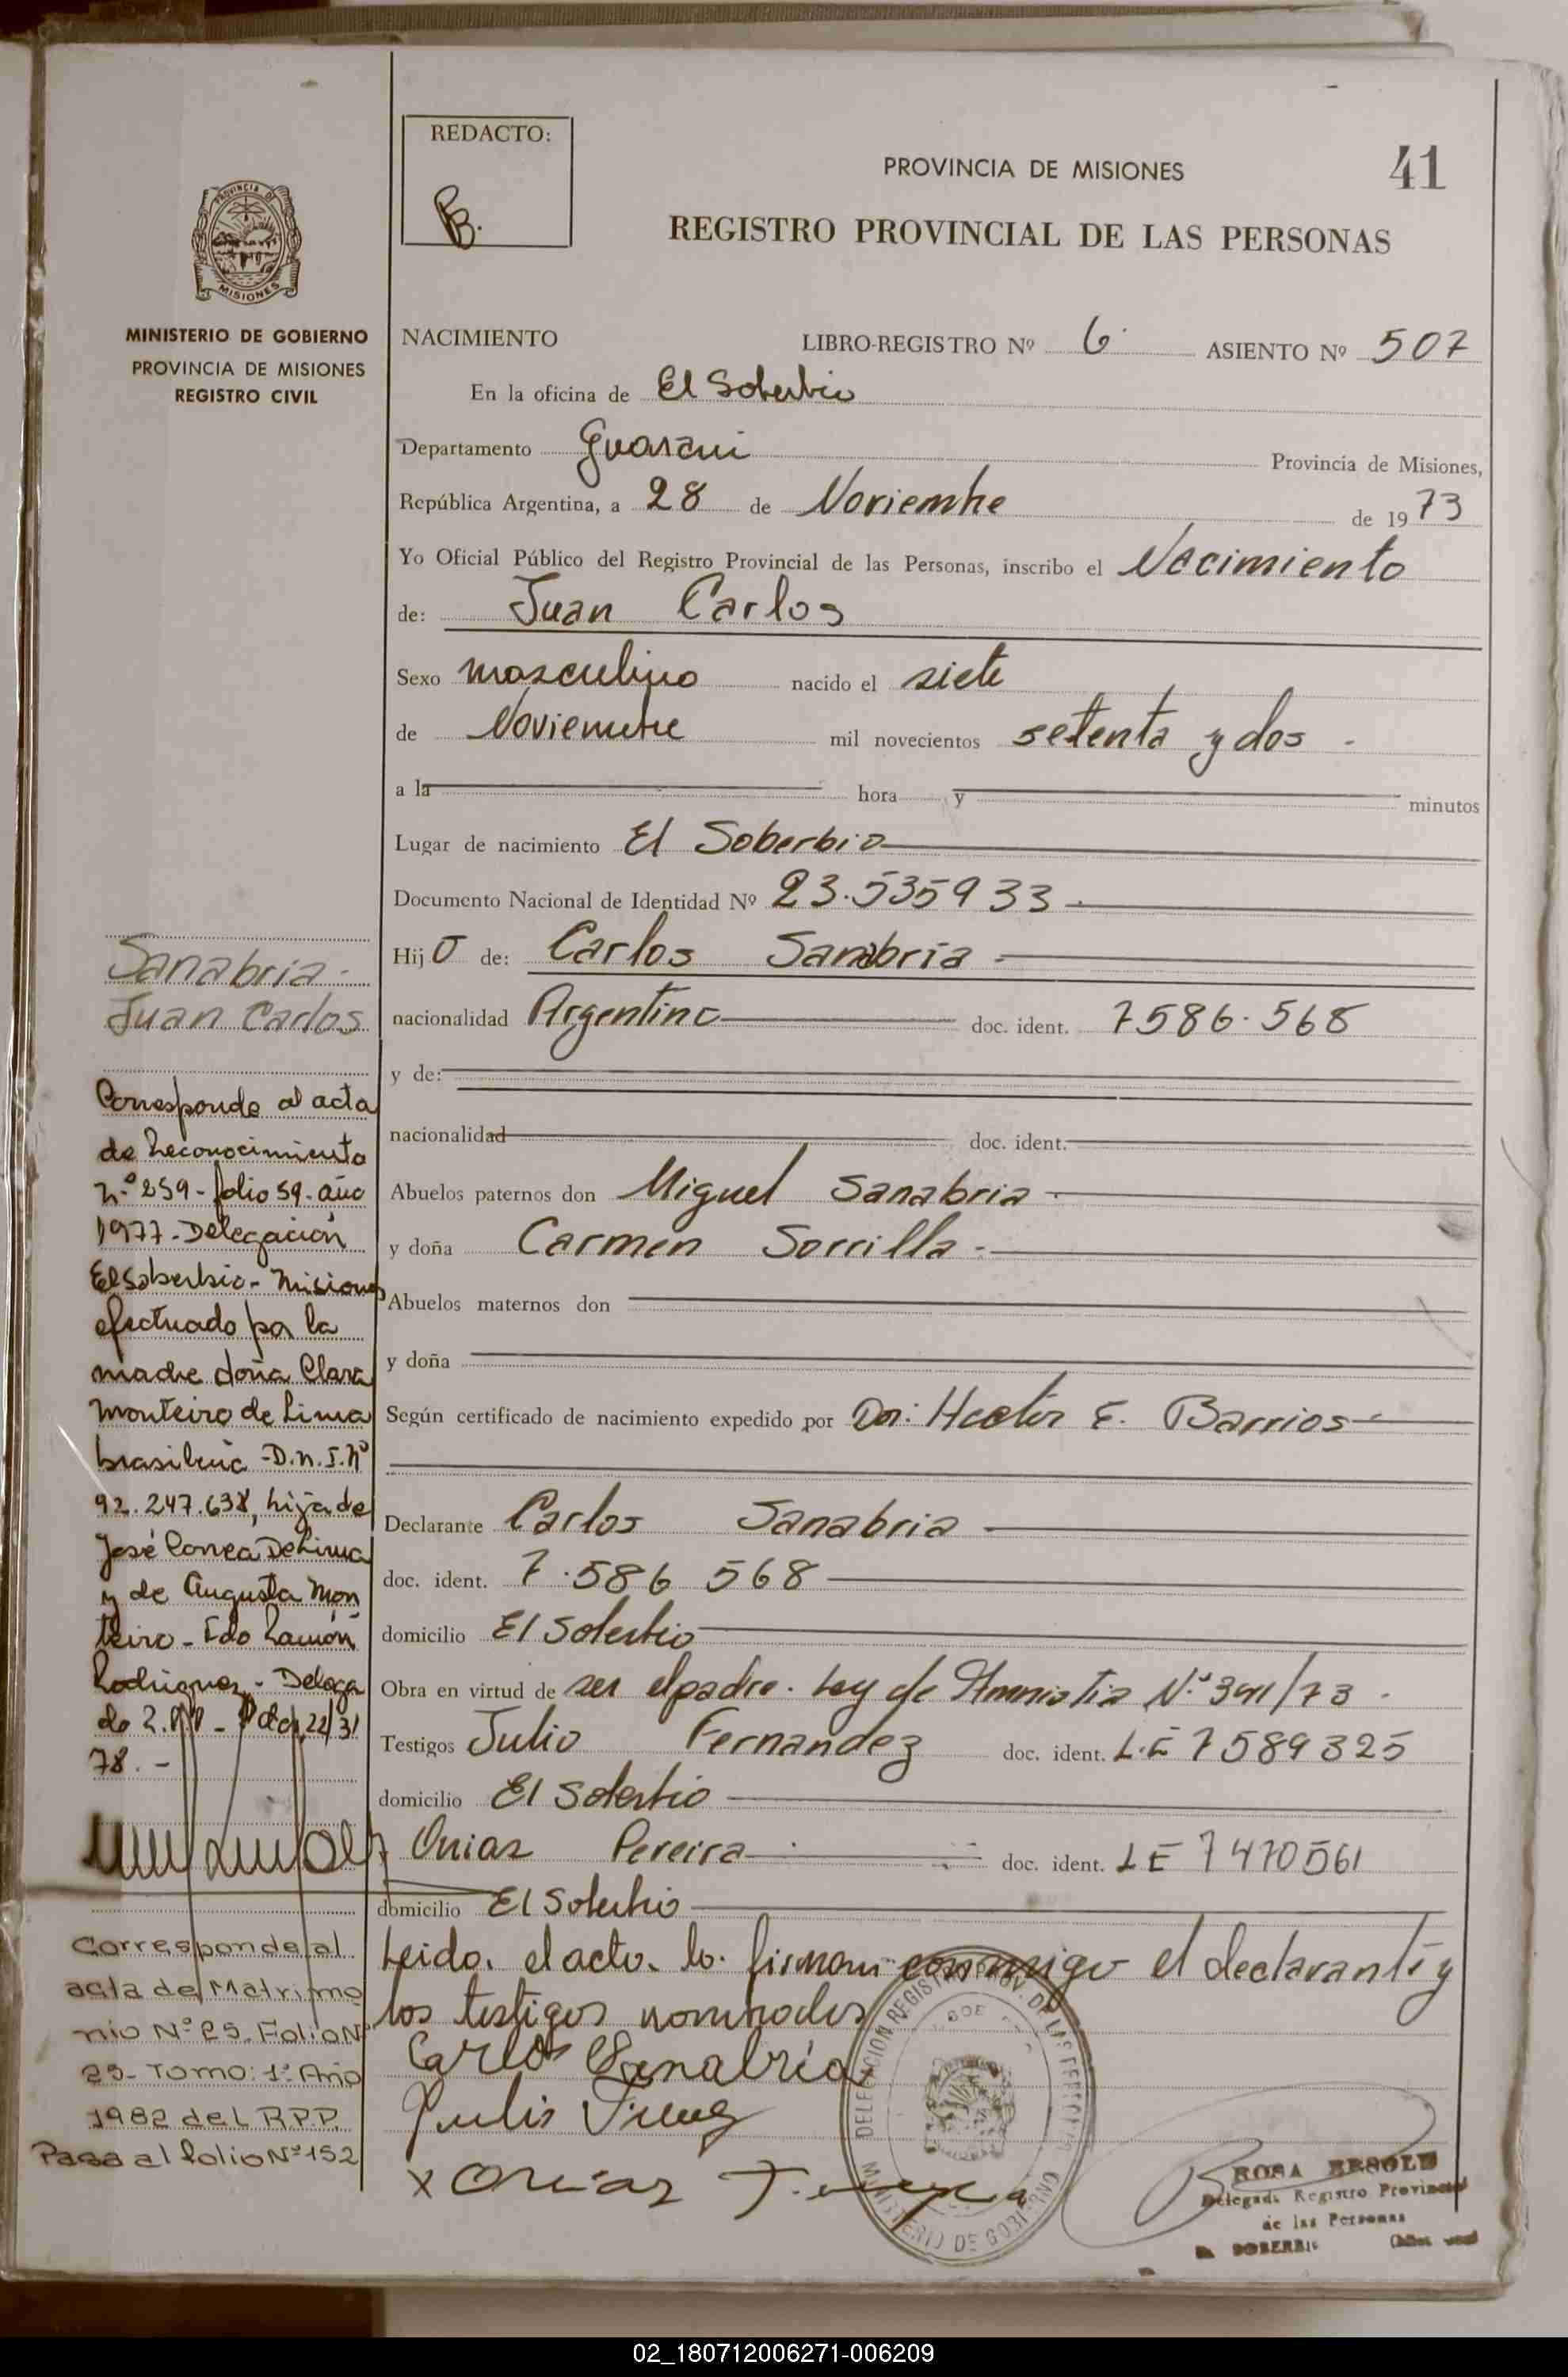 REDACTO:
B.
PROVINCIA DE MISIONES
41
REGISTRO PROVINCIAL DE LAS PERSONAS
PROVINCIA DE
MISIONES
MINISTERIO DE GOBIERNO
PROVINCIA DE MISIONES
REGISTRO CIVIL
NACIMIENTO LIBRO-REGISTRO Nº 6 ASIENTO Nº 507
En la oficina de El Soberbio
Departamento Guarani Provincia de Misiones,
República Argentina, a 28 de Noviembre de 1973
Yo Oficial Público del Registro Provincial de las Personas, inscribo el Nacimiento
de: Juan Carlos
Sexo masculino nacido el siete
de Noviembre mil novecientos setenta y dos -
a la hora y minutos
Lugar de nacimiento El Soberbio
Documento Nacional de Identidad Nº 23.535933
Hijo de: Carlos Sanabria
nacionalidad Argentino doc. ident. 7586.568
y de:
nacionalidad doc. ident.
Abuelos paternos don Miguel Sanabria
y doña Carmen Sorrilla
Abuelos maternos don
y doña
Según certificado de nacimiento expedido por Dr: Hector E. Barrios
Declarante Carlos Sanabria
doc. ident. 7.586 568
domicilio El Soberbio
Obra en virtud de ser el padre. Ley de Amnistia N° 391/73.
Testigos Julio Fernandez doc. ident. L.E 7589325
domicilio El Soberbio
Onias Pereira doc. ident. LE 7470561
domicilio El Soberbio
Leido el acto lo firman conmigo el declarante y
los testigos nombrados
Carlos Sanabria
Julio
x Onias
Sanabria
Juan Carlos
Corresponde al acta
de Reconocimiento
N.º 259 - folio 59 - año
1977 - Delegación
El Soberbio - Misiones
efectuado por la
madre doña Clara
Monteiro de Lima
brasileña - D.N.I. Nº
92.247.638, hija de
José Correa De Lima
y de Augusta Mon
teiro - Fdo Ramón
Rodriguez - Delega
do 2.
78. -
Corresponde al
acta de Matrimo
nio Nº 29. Folio Nº
29- Tomo: 1º Año
1982 del R.P.P.
Pasa al folio Nº 152
DELEGACION REGISTRO PROV. DE LAS PERSONAS
MINISTERIO DE GOBIERNO
ROSA
Delegada Registro Provincial
de las Personas
EL SOBERBIO
02_180712006271-006209